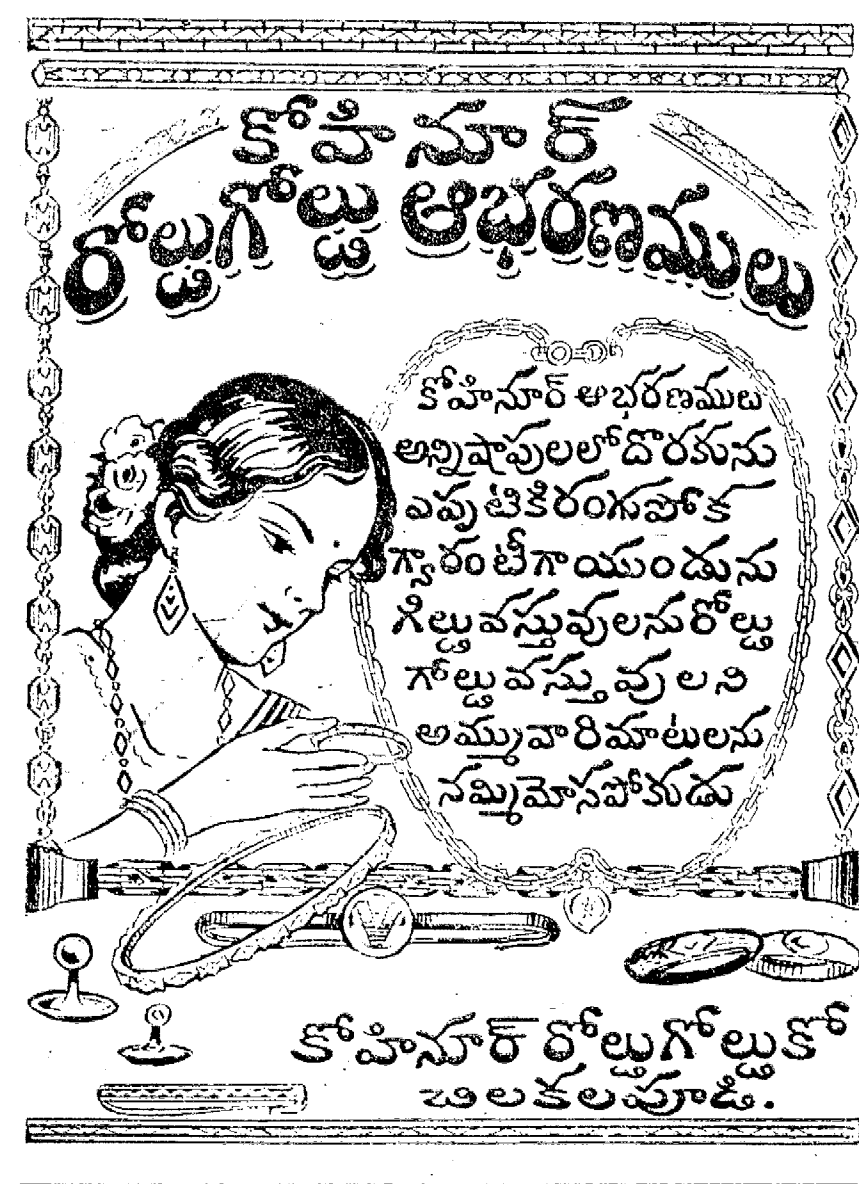 కోహినూర్
రోల్డుగోల్డు ఆభరణములు
కోహినూర్ ఆభరణములు
అన్నిషాపులలోదొరకును
ఎప్పటికిరంగుపోక
గ్యారంటీగాయుండును
గిల్టువస్తువులనురోల్డు
గోల్డువస్తువులని
అమ్మువారిమాటులను
నమ్మిమోసపోకుడు
కోహినూర్ రోల్డుగోల్డుకో
చిలకలపూడి.